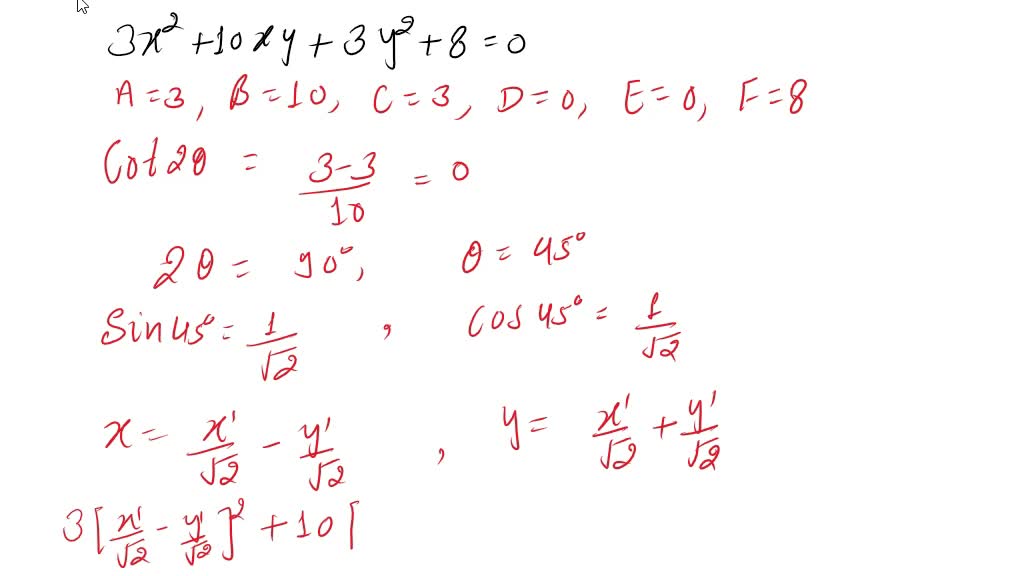 3x² + 10xy + 3y² + 8 = 0
A = 3, B = 10, C = 3, D = 0, E = 0, F = 8
Cot2θ = \frac{3-3}{10} = 0
2θ = 90°, θ = 45°
Sin45° = \frac{1}{√2} , Cos45° = \frac{1}{√2}
x = \frac{x'}{√2} - \frac{y'}{√2} , y = \frac{x'}{√2} + \frac{y'}{√2}
3[\frac{x'}{√2} - \frac{y'}{√2}]² + 10[